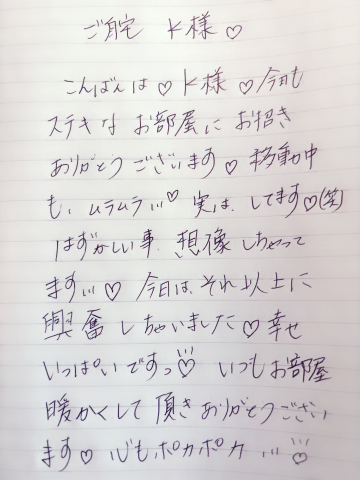 ご自宅 K様♡
こんばんは♡K様♡今日も
ステキなお部屋にお招き
ありがとうございます♡移動中
も、ムラムラ…♡実は、してます♡(笑)
はずかしい事、想像しちゃって
ます…♡今日は、それ以上に
興奮しちゃいました♡幸せ
いっぱいですっ♡いつもお部屋
暖かくして頂きありがとうござい
ます♡心もポカポカ…♡